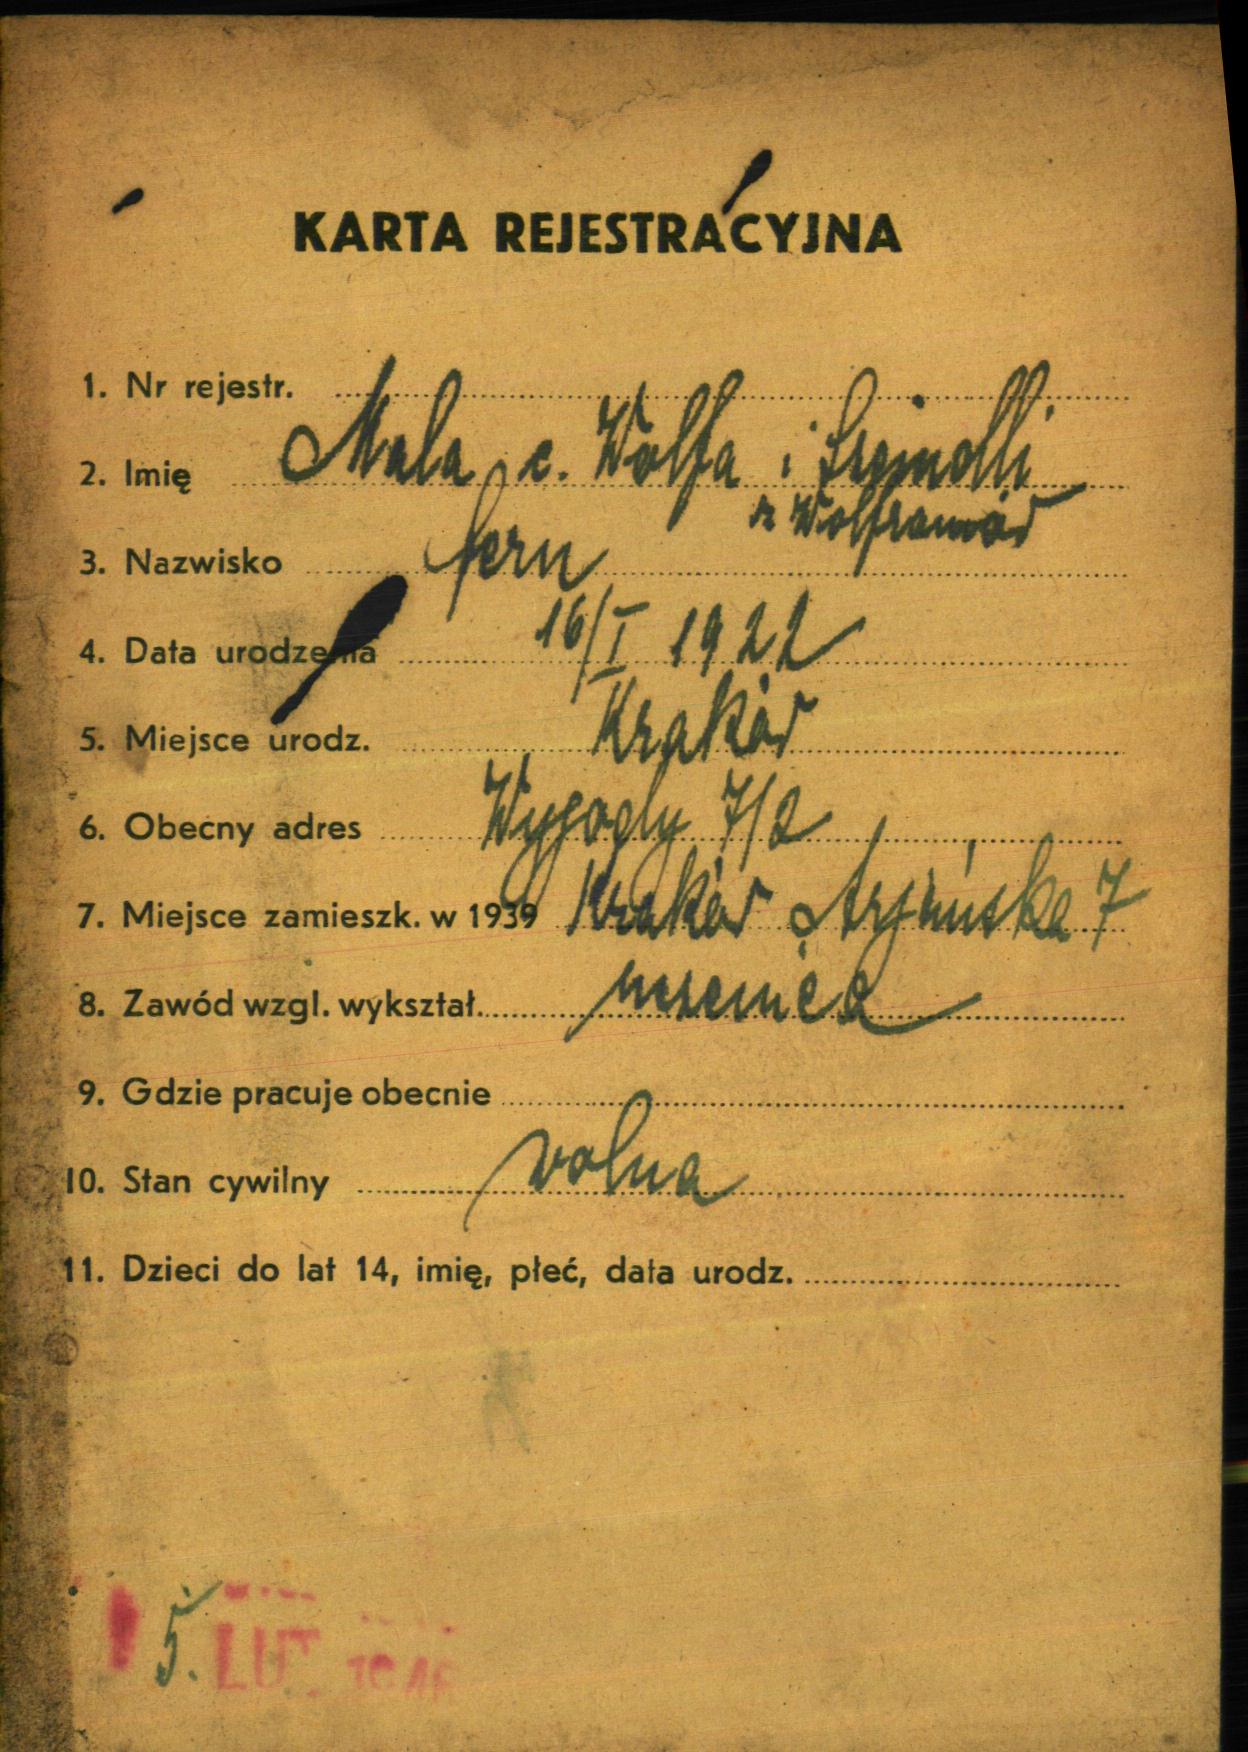 KARTA REJESTRACYJNA
1. Nr rejestr.
2. Imię Mala c. Wolfa i
z Wolframów
3. Nazwisko Fern
4. Data urodzenia 16/I 1922
5. Miejsce urodz. Kraków
6. Obecny adres Wygody 7/2
7. Miejsce zamieszk. w 1939 Kraków 7
8. Zawód wzgl. wykształ. uczenica
9. Gdzie pracuje obecnie
10. Stan cywilny wolna
11. Dzieci do lat 14, imię, płeć, data urodz.
5. LUT.